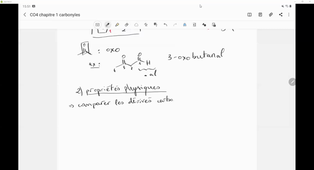 CO4 chapitre 1 carbonyles
: oxo
ex:
H
3-oxobutanal
2) propriétés physiques
comparer les dérivés